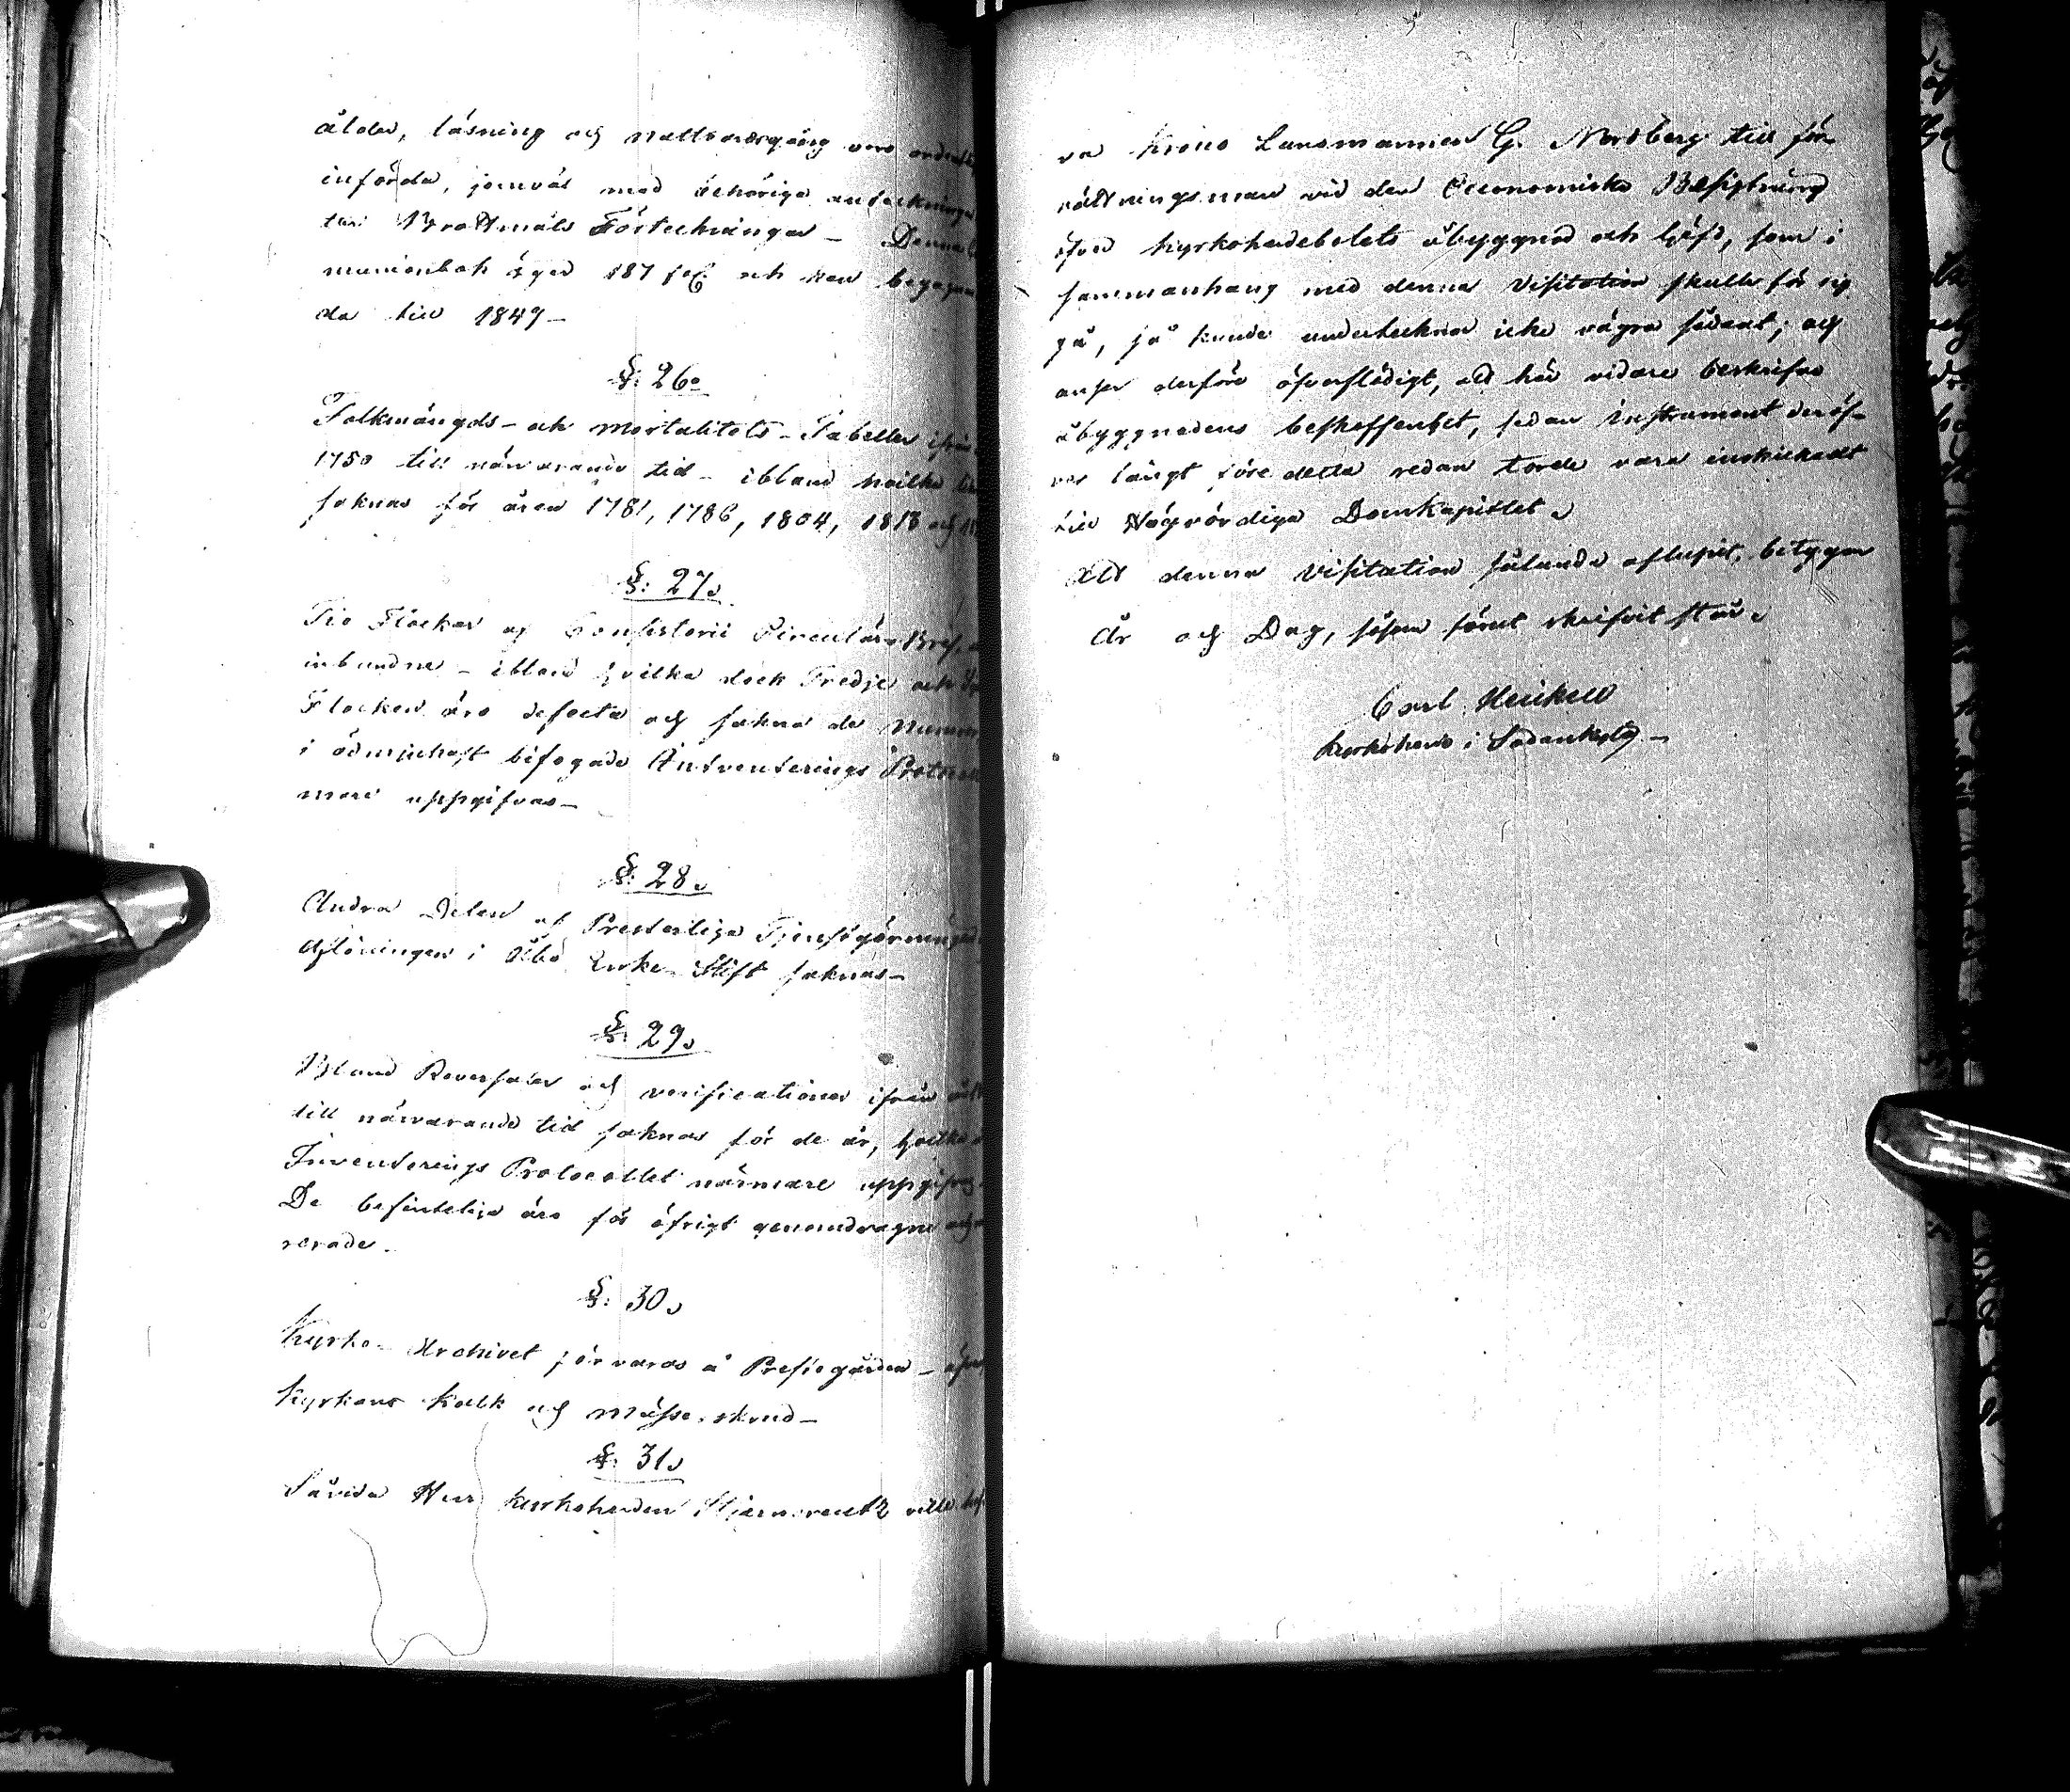 ålder, läsning och nattvardsgång voro
införda, jemväl med behöriga anteckningar
ur Brottmåls Förteckningar –
munionbok äger 187 och kan begagnas
da till 1849 –
§: 26.
Folkmängds- och Mortalitets-Tabeller ifrån
1750 till närvarande tid – ibland hvilka
saknas för åren 1781, 1786, 1804, 1813 och
§: 27.
Tio Flockar af Consistorii Circulär Bref,
inbundne – ibland hvilka dock Tredje och
Flocken äro defecta och sakna de
i ödmjukhet bifogade Inventerings
mare uppgifvas –
§: 28.
Andra Delen af Presterliga Tjenstgöringen
Aflöningen i Åbo Erke-Stift saknas –
§: 29.
Bland Reversaler och verificationer ifrån
till närvarande tid saknas för de år, hvilka
Inventerings Protocollet närmare uppgifves
De befinteliga äro för öfrigt genomdragne och
rerade.
§: 30.
Kyrko-Archivet förvaras å Prestegården –
Kyrkans Kalk och Mässe-skrud –
§: 31.
Såvida Herr Kyrkoherden Stjerncreutz ville
va Krono Länsmannen G. Nordberg till för-
rättningsman vid den Oeconomiska Besigtning
öfver Kyrkoherdebolets åbyggnad och häfd, som i
sammanhang med denna Visitation skulle för sig
gå, så kunde undertecknad icke vägra sådant; och
anser derföre öfverflödigt, att här vidare beskrifva
åbyggnadens beskaffenhet, sedan instrument deröf-
ver långt före detta redan torde vara inskickadt
till Högvördiga Domkapitlet.
Att denna Visitation sålunda aflupit, betygar
År och Dag, såsom förut skrifvit står.
Carl Heikell
Kyrkoherde i Sodankylä –